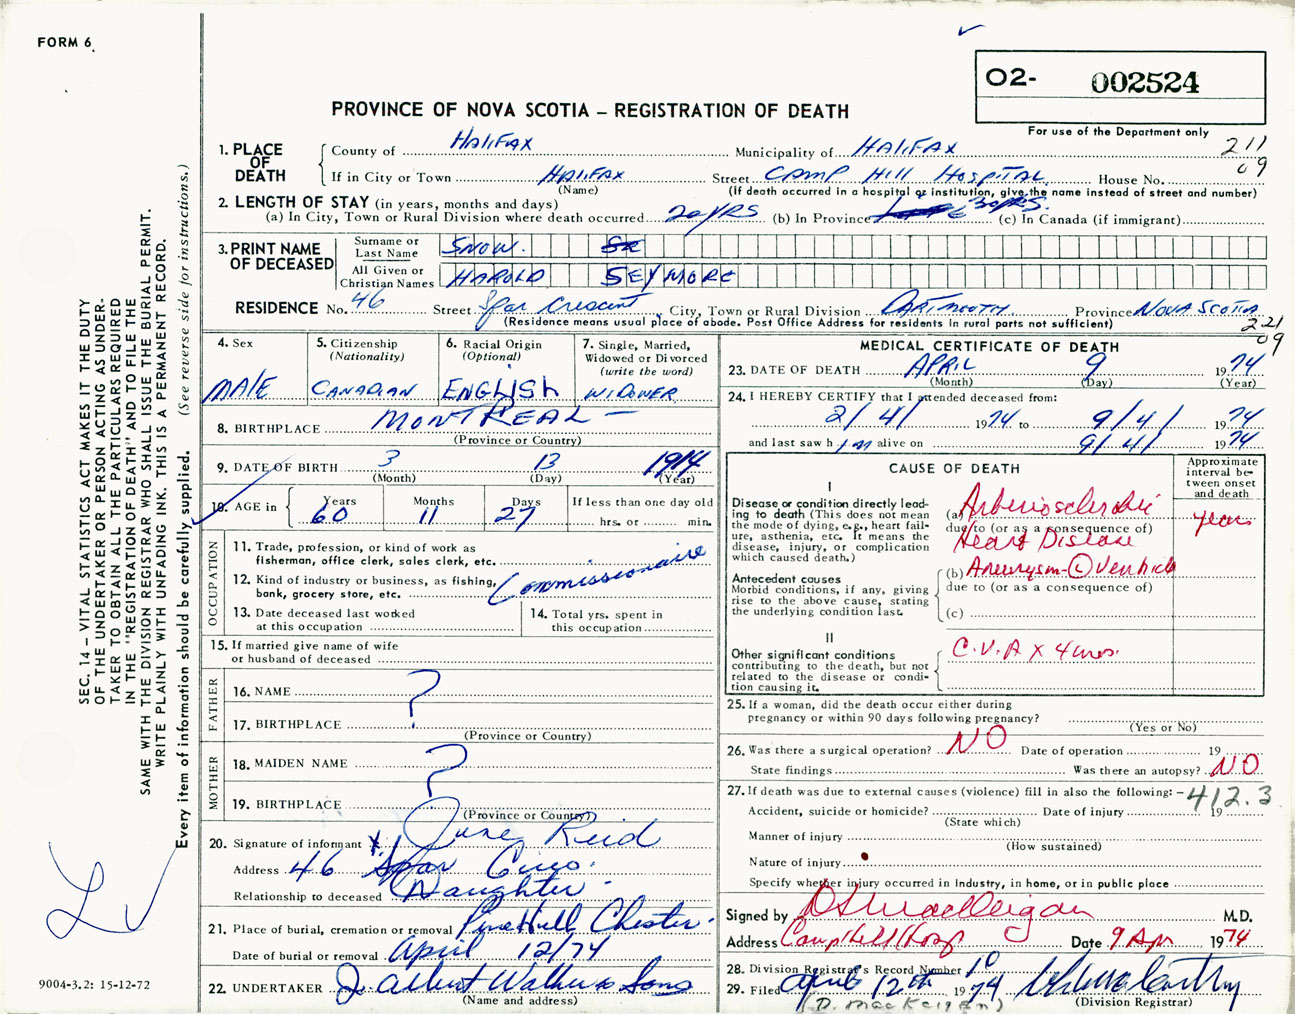 FORM 6
O2- 002524
PROVINCE OF NOVA SCOTIA – REGISTRATION OF DEATH
For use of the Department only
211
09
1. PLACE OF DEATH
County of HALIFAX Municipality of HALIFAX
If in City or Town HALIFAX Street CAMP HILL HOSPITAL House No.
(Name) (If death occurred in a hospital or institution, give the name instead of street and number)
2. LENGTH OF STAY (in years, months and days)
(a) In City, Town or Rural Division where death occurred 20 YRS (b) In Province 30 YRS. (c) In Canada (if immigrant)
3. PRINT NAME OF DECEASED
Surname or Last Name SNOW.
All Given or Christian Names HAROLD SEYMORE
RESIDENCE No. 46 Street Spar Crescent City, Town or Rural Division DARTMOUTH Province NOVA SCOTIA
(Residence means usual place of abode. Post Office Address for residents in rural parts not sufficient)
221
09
4. Sex MALE
5. Citizenship (Nationality) CANADIAN
6. Racial Origin (Optional) ENGLISH
7. Single, Married, Widowed or Divorced (write the word) WIDOWER
8. BIRTHPLACE MONTREAL –
(Province or Country)
9. DATE OF BIRTH 3 13 1914
(Month) (Day) (Year)
10. AGE in Years 60 Months 11 Days 27 If less than one day old
hrs. or min.
OCCUPATION
11. Trade, profession, or kind of work as fisherman, office clerk, sales clerk, etc.
12. Kind of industry or business, as fishing, bank, grocery store, etc. Commissionaire
13. Date deceased last worked at this occupation
14. Total yrs. spent in this occupation
15. If married give name of wife or husband of deceased
FATHER
16. NAME ?
17. BIRTHPLACE
(Province or Country)
MOTHER
18. MAIDEN NAME ?
19. BIRTHPLACE
(Province or Country)
20. Signature of informant X June Reid
Address 46 Spar Cres.
Relationship to deceased Daughter.
21. Place of burial, cremation or removal Pine Hill Chester.
Date of burial or removal April 12/74
22. UNDERTAKER J. Albert Walker & Sons
(Name and address)
MEDICAL CERTIFICATE OF DEATH
23. DATE OF DEATH APRIL 9 1974
(Month) (Day) (Year)
24. I HEREBY CERTIFY that I attended deceased from:
2/4/ 1974 to 9/4/ 1974
and last saw him alive on 9/4/ 1974
CAUSE OF DEATH
Approximate interval between onset and death
I
Disease or condition directly leading to death (This does not mean the mode of dying, e.g., heart failure, asthenia, etc. It means the disease, injury, or complication which caused death.)
(a) Arteriosclerotic years
due to (or as a consequence of)
Heart Disease
Antecedent causes
Morbid conditions, if any, giving rise to the above cause, stating the underlying condition last.
(b) Aneurysm - L Ventricle
due to (or as a consequence of)
(c)
II
Other significant conditions contributing to the death, but not related to the disease or condition causing it.
C.V.A x 4
25. If a woman, did the death occur either during pregnancy or within 90 days following pregnancy?
(Yes or No)
26. Was there a surgical operation? NO Date of operation 19
State findings Was there an autopsy? NO
27. If death was due to external causes (violence) fill in also the following: – 412.3
Accident, suicide or homicide? Date of injury 19
(State which)
Manner of injury
(How sustained)
Nature of injury
Specify whether injury occurred in Industry, in home, or in public place
Signed by M.D.
Address Date 9 Apr 1974
28. Division Registrar's Record Number 10
29. Filed April 12th 1974
(Division Registrar)
(D. MacKeigan)
SEC. 14 – VITAL STATISTICS ACT MAKES IT THE DUTY
OF THE UNDERTAKER OR PERSON ACTING AS UNDER-
TAKER TO OBTAIN ALL THE PARTICULARS REQUIRED
IN THE "REGISTRATION OF DEATH" AND TO FILE THE
SAME WITH THE DIVISION REGISTRAR WHO SHALL ISSUE THE BURIAL PERMIT.
WRITE PLAINLY WITH UNFADING INK. THIS IS A PERMANENT RECORD.
Every item of information should be carefully supplied. (See reverse side for instructions.)
9004-3.2: 15-12-72